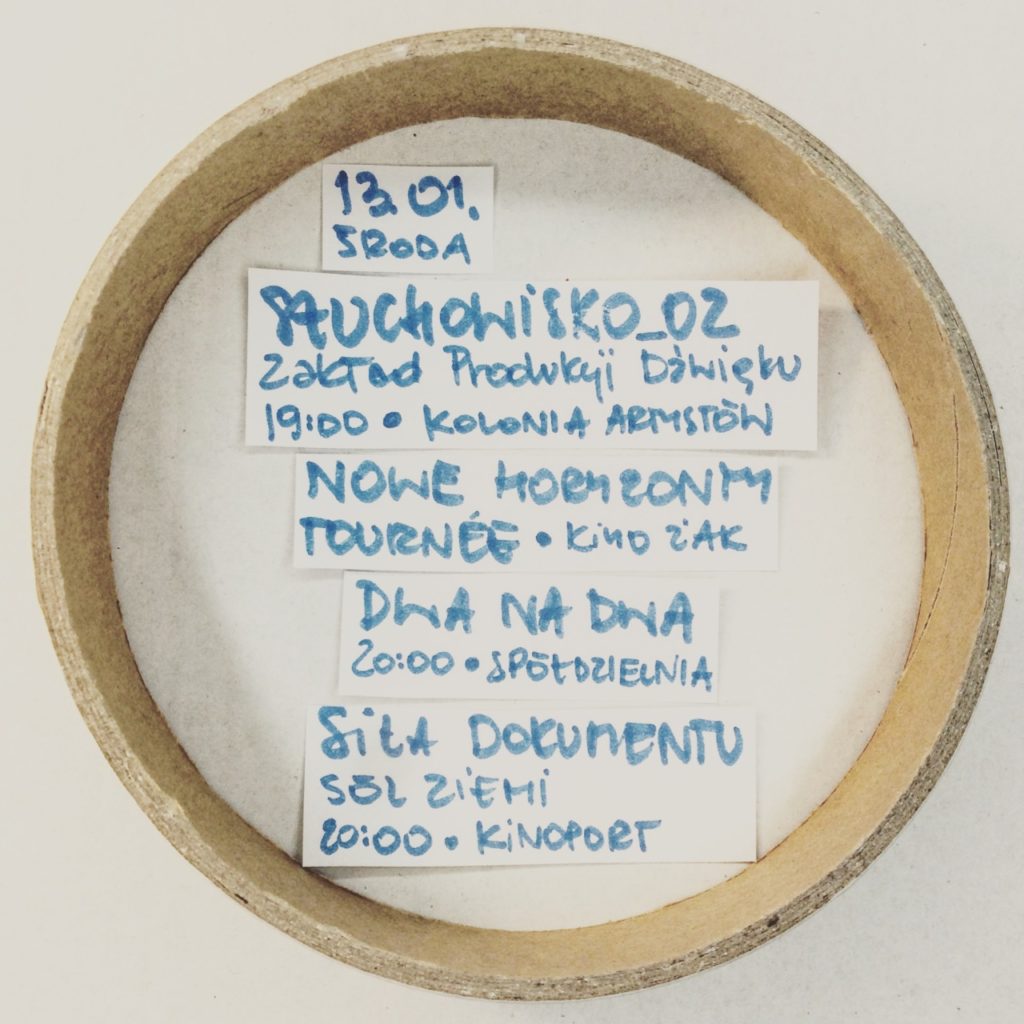 13.01.
ŚRODA
SŁUCHOWISKO_02
Zakład Produkcji Dźwięku
19:00 • KOLONIA ARTYSTÓW
NOWE HORYZONTY
TOURNÉE • KINO ŻAK
DWA NA DWA
20:00 • SPÓŁDZIELNIA
SiŁA DOKUMENTU
SÓL ZIEMI
20:00 • KINOPORT